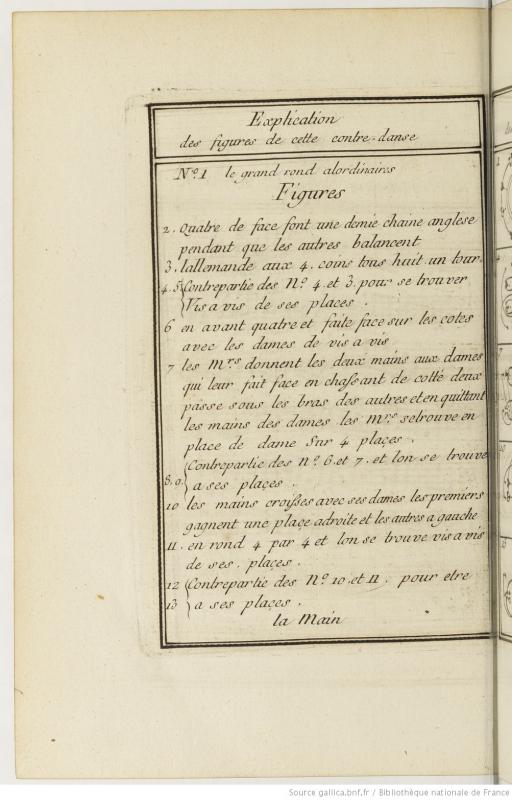 Explication
des figures de cette contre-danse
N.º 1 le grand rond alordinaires
Figures
2. quatre de face font une demie chaine anglese
pendant que les autres balancent
3. lallemande aux 4. coins tous huit un tour.
4. 5 { Contrepartie des N.º 4. et 3. pour se trouver
Vis a vis de ses places.
6 en avant quatre et faite face sur les cotes
avec les dames de vis a vis
7 les M.rs donnent les deux mains aux dames
qui leur fait face en chaſsant de cotté deux
passe sous les bras des autres et en quittant
les mains des dames les M.rs setrouve en
place de dame sur 4 plaçes.
8. 9. { Contrepartie des n.º 6. et 7. et lon se trouve
a ses plaçes.
10 les mains croiſses avec ses dames les premiers
gagnent une plaçe adroite et les autres a gauche
11. en rond 4 par 4 et lon se trouve vis a vis
de ses. plaçes.
12 { Contrepartie des N.º 10 et 11. pour etre
13 a ses plaçes.
la Main
Source gallica.bnf.fr / Bibliothèque nationale de France